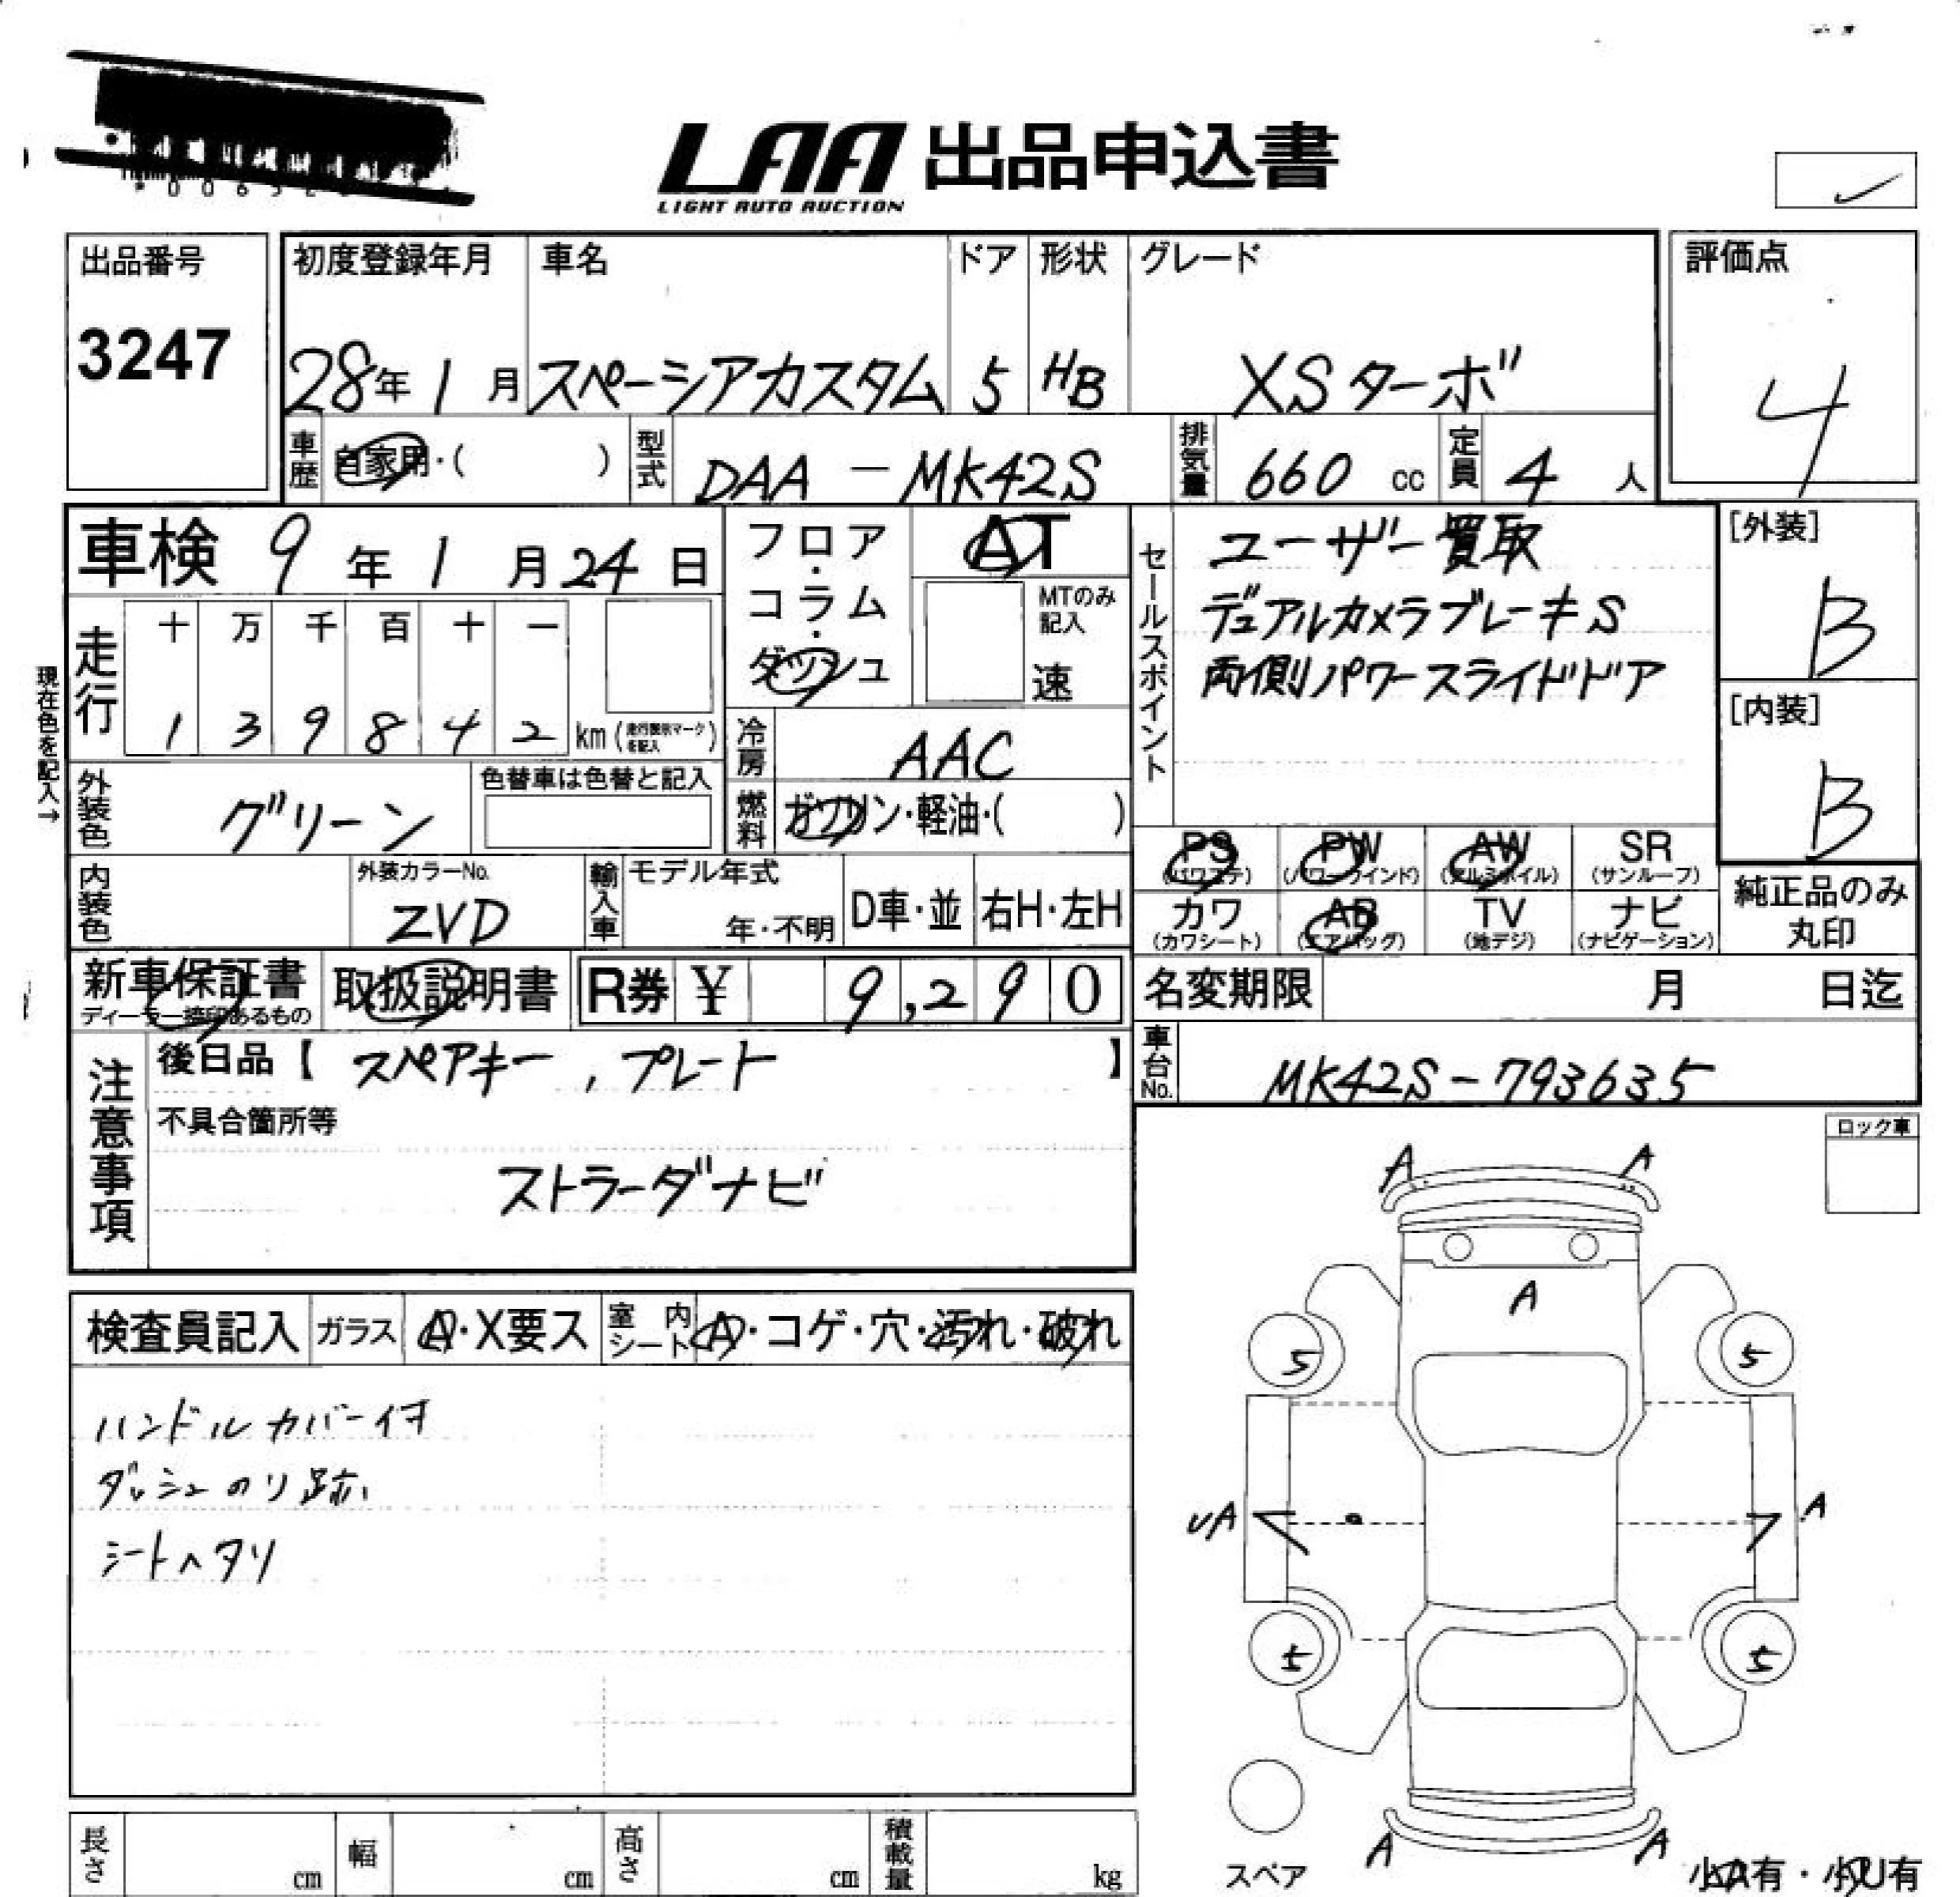 LAA 出品申込書
LIGHT AUTO AUCTION
出品番号
3247
初度登録年月 車名 ドア 形状 グレード
28年 1月 スペーシアカスタム 5 HB XSターボ
評価点
4
車歴 自家用・( ) 型式 DAA-MK42S 排気量 660 cc 定員 4 人
車検 9年 1月 24日
フロア・コラム・ダッシュ
AT
MTのみ記入
速
セールスポイント
ユーザー買取
デュアルカメラブレーキS
両側パワースライドドア
[外装]
B
[内装]
B
現在色を記入→
走行 十 万 千 百 十 一
1 3 9 8 4 2 km (走行距離マークを記入)
冷房 AAC
外装色 グリーン
色替車は色替と記入
燃料 ガソリン・軽油・( )
PS (パワステ) PW (パワーウインド) AW (アルミホイル) SR (サンルーフ)
カワ (カワシート) AB (エアバッグ) TV (地デジ) ナビ (ナビゲーション)
純正品のみ丸印
内装色
外装カラーNo. ZVD
輸入車 モデル年式 年・不明 D車・並 右H・左H
新車保証書 ディーラー捺印あるもの
取扱説明書
R券 ¥ 9,290
名変期限 月 日迄
車台No. MK42S-793635
注意事項
後日品【 スペアキー, プレート 】
不具合箇所等
ストラーダナビ
ロック車
検査員記入 ガラス A・X要ス 室内シート A・コゲ・穴・汚れ・破れ
ハンドルカバー付
ダッシュのり跡
シートヘタリ
A A
A
5 5
UA A
5 5
A A
スペア
小A有・小U有
長さ cm 幅 cm 高さ cm 積載量 kg